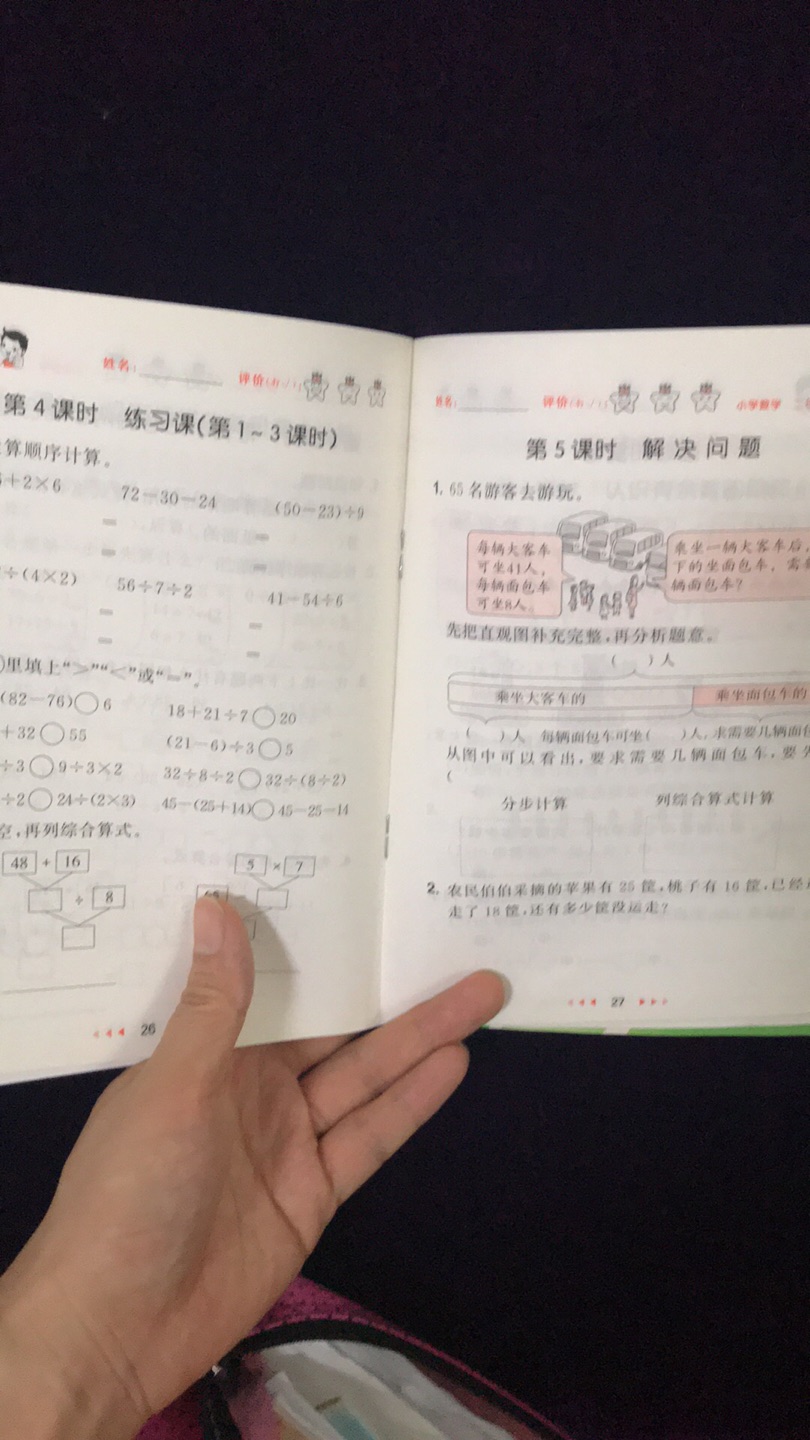 姓名:
评价
第4课时 练习课(第1~3课时)
算顺序计算。
+2×6
72-30-24
(50-23)÷9
=
=
=
÷(4×2)
56÷7÷2
41-54÷6
=
=
=
=
里填上“>”“<”或“=”。
(82-76)○6
18+21÷7○20
+32○55
(21-6)÷3○5
÷3○9÷3×2
32÷8÷2○32÷(8÷2)
÷2○24÷(2×3)
45-(25+14)○45-25-14
空,再列综合算式。
48 + 16
÷ 8
5 × 7
26
姓名:
评价
小学数学
第5课时 解决问题
1. 65名游客去游玩。
每辆大客车
可坐41人,
每辆面包车
可坐8人。
乘坐一辆大客车后,
下的坐面包车,需
辆面包车?
先把直观图补充完整,再分析题意。
( )人
乘坐大客车的
乘坐面包车的
( )人 每辆面包车可坐( )人,求需要几辆面
从图中可以看出,要求需要几辆面包车,要
(
分步计算
列综合算式计算
2. 农民伯伯采摘的苹果有25筐,桃子有16筐,已经
走了18筐,还有多少筐没运走?
27